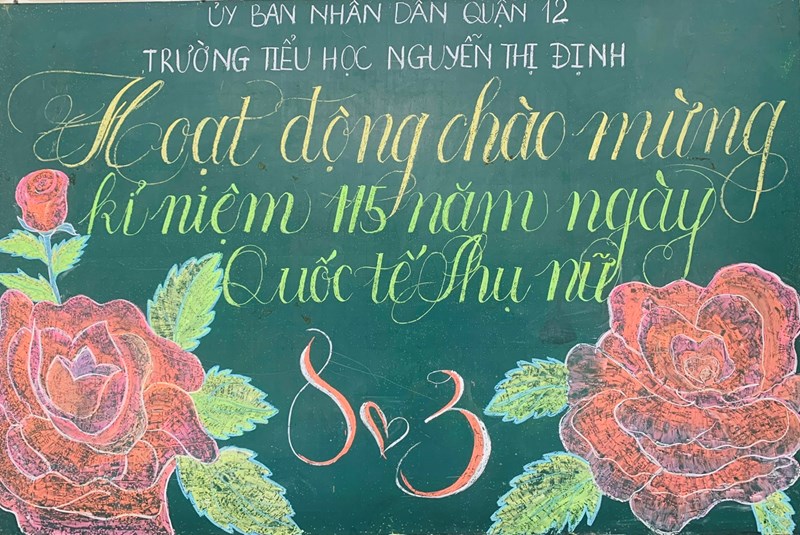 ỦY BAN NHÂN DÂN QUẬN 12
TRƯỜNG TIỂU HỌC NGUYỄN THỊ ĐỊNH
Hoạt động chào mừng
kỉ niệm 115 năm ngày
Quốc tế Phụ nữ
8 3